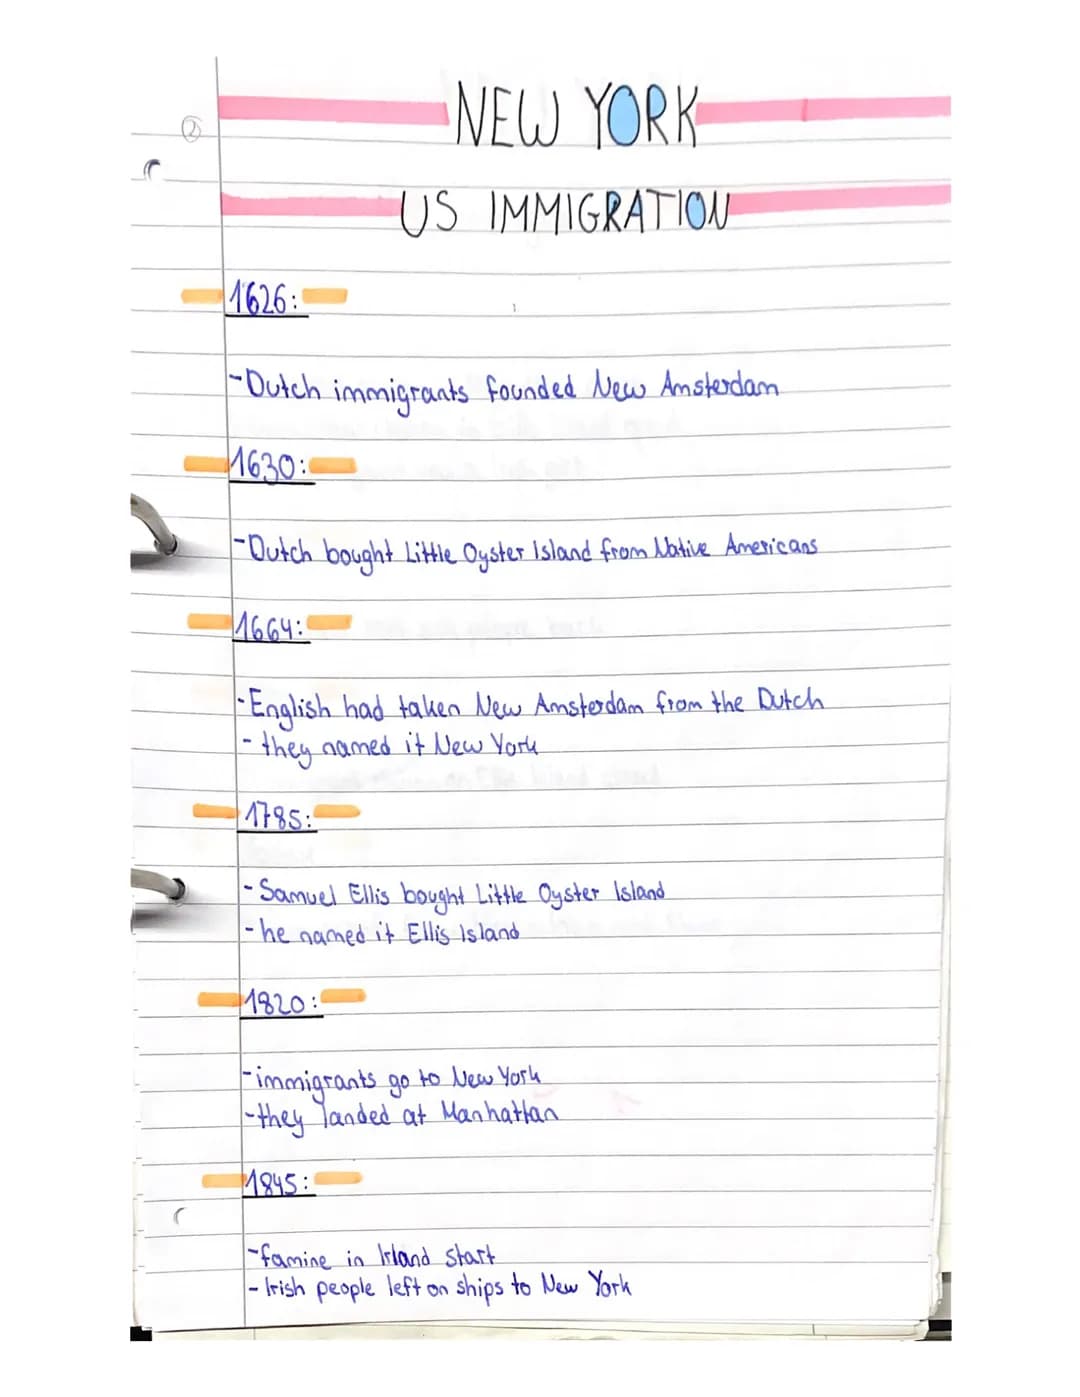 ②
NEW YORK
US IMMIGRATION
1626:
-Dutch immigrants founded New Amsterdam
1630:
-Dutch bought Little Oyster Island from Native Americans
1664:
-English had taken New Amsterdam from the Dutch
- they named it New York
1785:
- Samuel Ellis bought Little Oyster Island
- he named it Ellis Island
1820:
-immigrants go to New York
-they landed at Manhattan
1845:
-famine in Irland start
- Irish people left on ships to New York